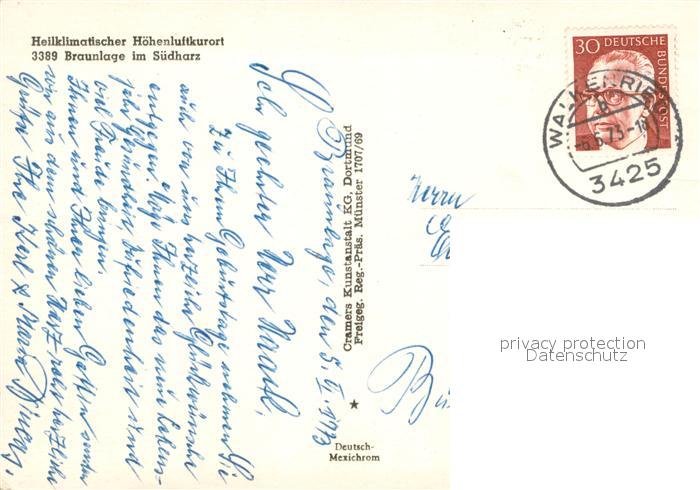 Heilklimatischer Höhenluftkurort
3389 Braunlage im Südharz
Braunlage, den 5. VI. 1973
Sehr geehrter Herr
Zu Ihrem Geburtstage nehmen Sie
auch von uns herzliche Glückwünsche
entgegen. Möge Ihnen das neue Lebens-
jahr Gesundheit, Zufriedenheit und
viel Freude bringen.
Ihnen und Ihrer lieben Gattin senden
wir aus dem schönen Harz recht herzliche
Grüße Ihre Karl & Maria
Cramers Kunstanstalt KG, Dortmund
Freigeg. Reg.-Präs. Münster 1707/69
★
Deutsch-
Mexichrom
30 DEUTSCHE
BUNDESPOST
WALKENRIED
b
-6.6.73-18
3425
Herrn
privacy protection
Datenschutz